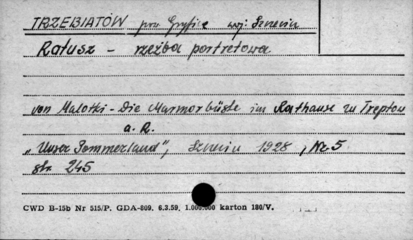 TRZEBIATÓW pow. Gryfice woj. Szczecin
Ratusz - rzeźba portretowa
von Malotki - Die Marmorbüste im Rathause zu Treptow
a. R.
„Unser Pommerland", Szczecin 1928, Nr. 5
str. 245
CWD B-15b Nr 515/P. GDA-809. 6.3.59, 1.000.000 karton 180/V.